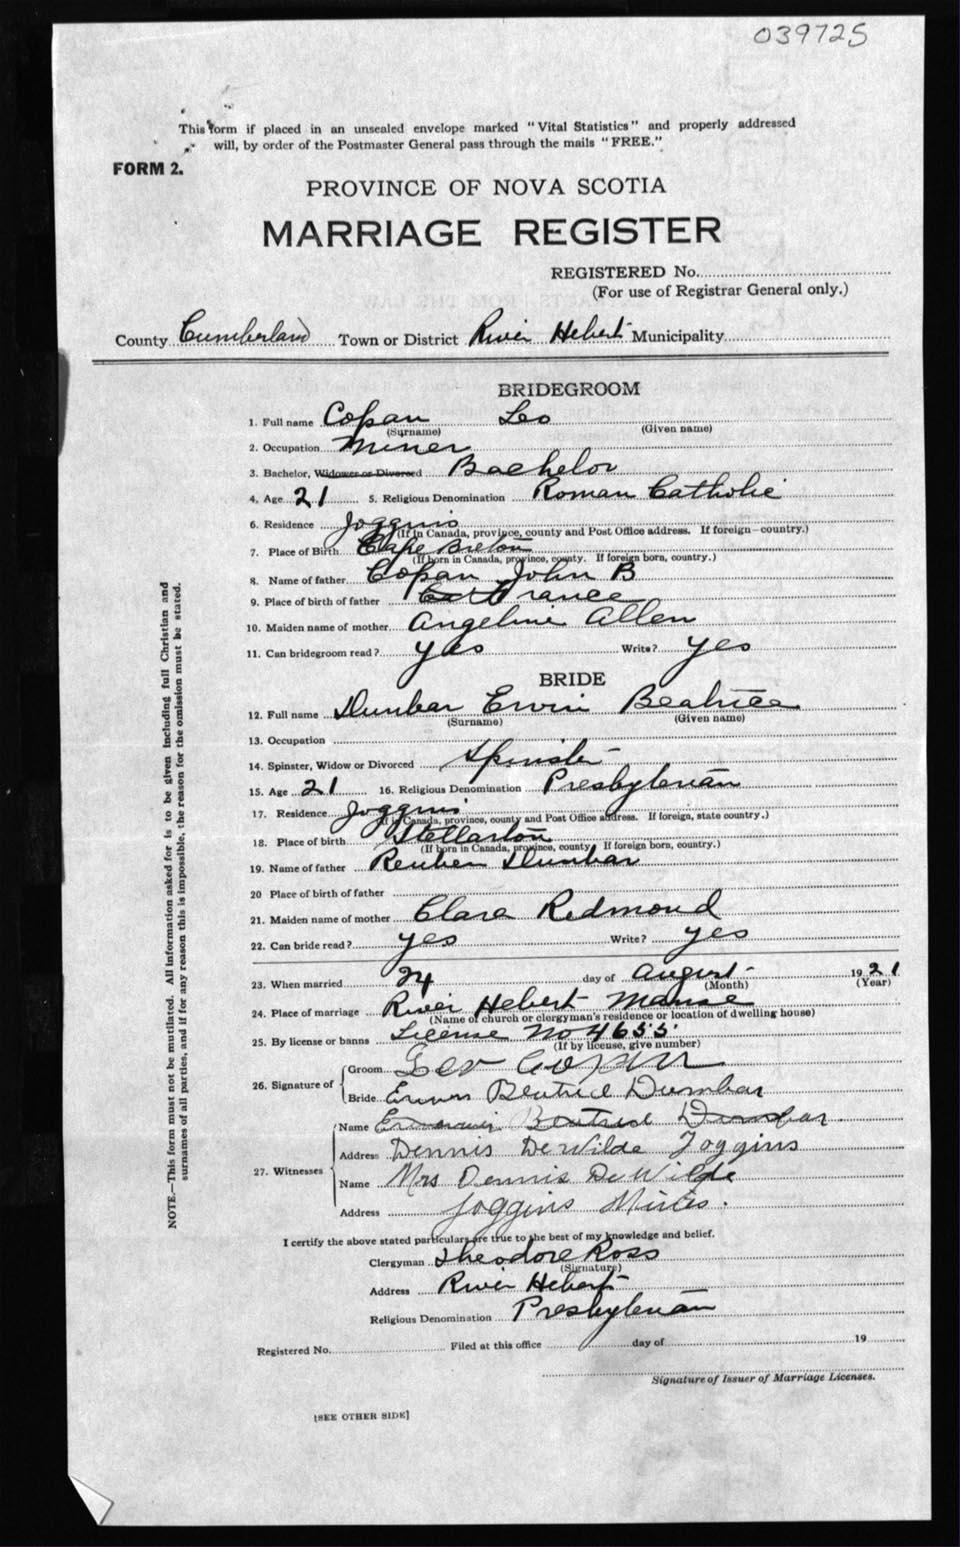 039725
This form if placed in an unsealed envelope marked "Vital Statistics" and properly addressed
will, by order of the Postmaster General pass through the mails "FREE."
FORM 2.
PROVINCE OF NOVA SCOTIA
MARRIAGE REGISTER
REGISTERED No.
(For use of Registrar General only.)
County Cumberland Town or District River Hebert Municipality
BRIDEGROOM
1. Full name Copan Leo
(Surname) (Given name)
2. Occupation Miner
3. Bachelor, Widower or Divorced Bachelor
4. Age 21 5. Religious Denomination Roman Catholic
6. Residence Joggins
(If in Canada, province, county and Post Office address. If foreign—country.)
7. Place of Birth Cape Breton
(If born in Canada, province, county. If foreign born, country.)
8. Name of father Copan John B
9. Place of birth of father France
10. Maiden name of mother Angeline Allen
11. Can bridegroom read? yes Write? yes
BRIDE
12. Full name Dunbar Ervin Beatrice
(Surname) (Given name)
13. Occupation
14. Spinster, Widow or Divorced Spinster
15. Age 21 16. Religious Denomination Presbyterian
17. Residence Joggins
(If in Canada, province, county and Post Office address. If foreign, state country.)
18. Place of birth Stellarton
(If born in Canada, province, county If foreign born, country.)
19. Name of father Reuben Dunbar
20 Place of birth of father
21. Maiden name of mother Clara Redmond
22. Can bride read? yes Write? yes
23. When married 24 day of August 1921
(Month) (Year)
24. Place of marriage River Hebert Manse
(Name of church or clergyman's residence or location of dwelling house)
25. By license or banns License No 4655
(If by license, give number)
26. Signature of Groom Leo Copan
Bride Beatrice Dunbar
27. Witnesses Name Beatrice Dunbar
Address Dennis DeWilde Joggins
Name Mrs Dennis DeWilde
Address Joggins Mines.
I certify the above stated particulars are true to the best of my knowledge and belief.
Clergyman Theodore Ross
(Signature)
Address River Hebert
Religious Denomination Presbyterian
Registered No. Filed at this office day of 19
Signature of Issuer of Marriage Licenses.
[SEE OTHER SIDE]
NOTE.—This form must not be mutilated. All information asked for is to be given including full Christian and
surnames of all parties, and if for any reason this is impossible, the reason for the omission must be stated.